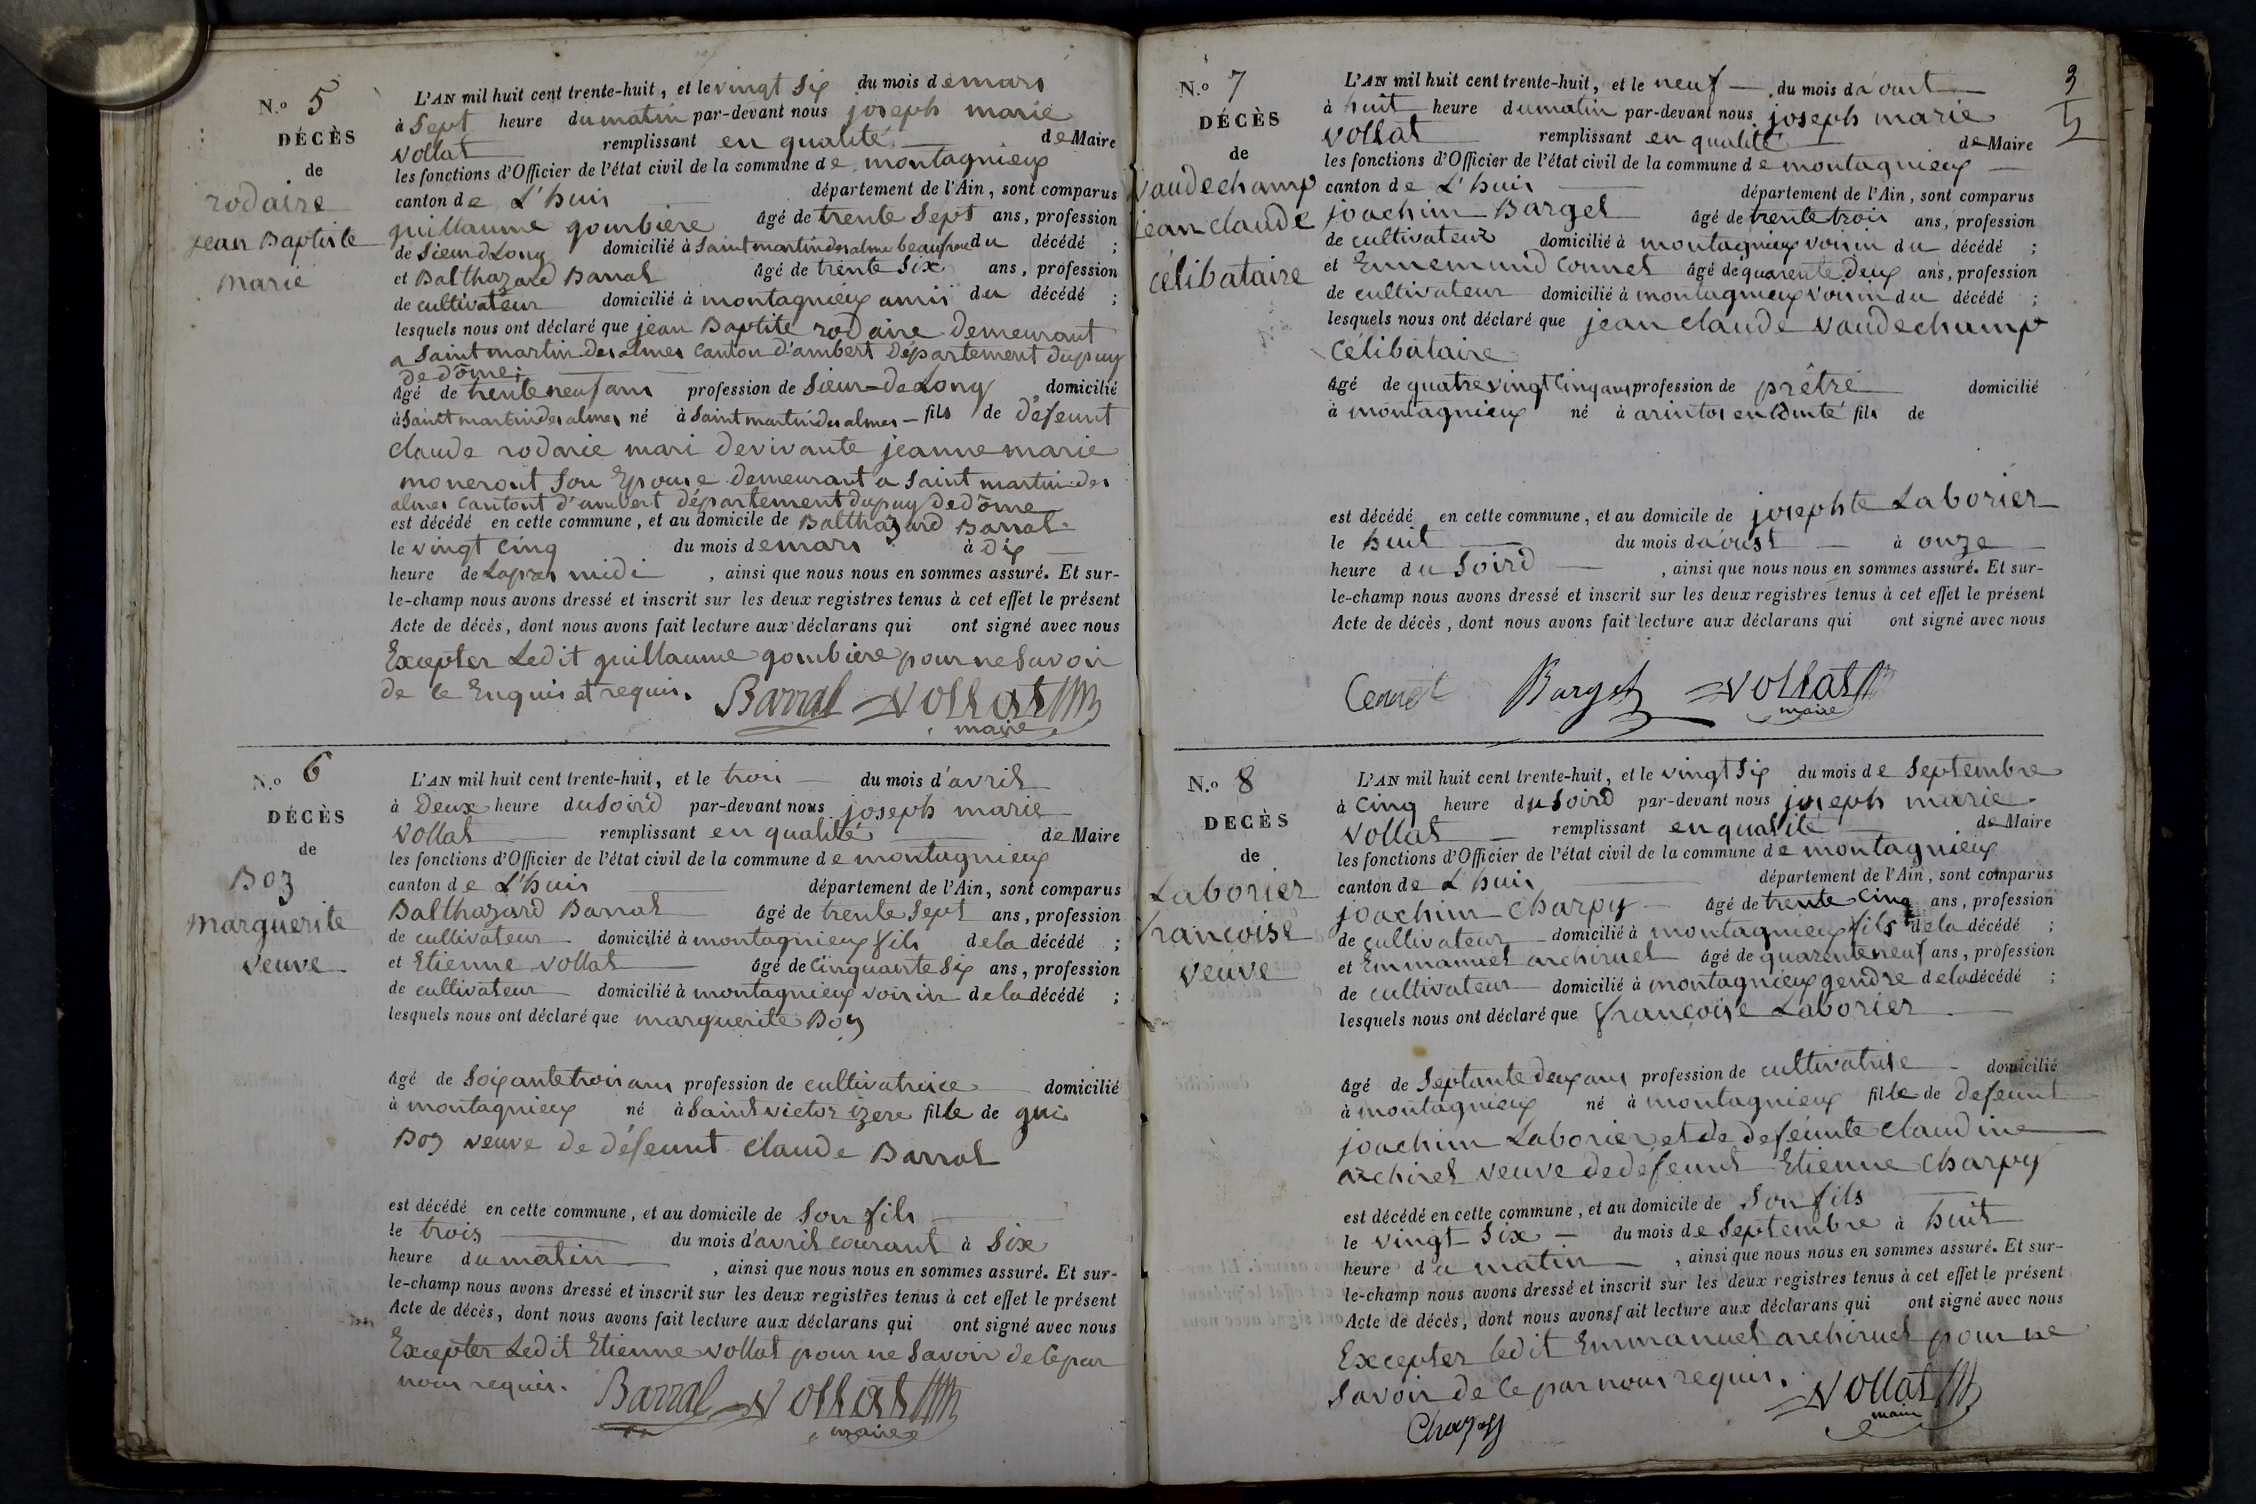 N.o 5
DÉCÈS
de
rodaire
jean Baptiste
marié
L'AN mil huit cent trente-huit, et le vingt Six du mois de mars
à Sept heure du matin par-devant nous joseph marie
vollat remplissant en qualité de Maire
les fonctions d'Officier de l'état civil de la commune de montagnieux
canton de L'huis département de l'Ain, sont comparus
guillaume gombiere âgé de trente Sept ans, profession
de Sieur de Long domicilié à Saint martin des alme beaufrere du décédé ;
et Balthazard Barral âgé de trente Six ans, profession
de cultivateur domicilié à montagnieux amis du décédé ;
lesquels nous ont déclaré que jean Baptite rodaire demeurant
a Saint martin des almes canton d'ambert département dupuy
de dôme.
âgé de trente neuf ans profession de Sieur de Long domicilié
à Saint martin des almes né à Saint martin des almes fils de défeunt
claude rodarie mari de vivante jeanne marie
moneront Son Epouse demeurant a Saint martin des
almes cantont d'ambert département dupuy de dôme
est décédé en cette commune, et au domicile de Balthazard Barral
le vingt cinq du mois de mars à dix
heure de Lapres midi , ainsi que nous nous en sommes assuré. Et sur-
le-champ nous avons dressé et inscrit sur les deux registres tenus à cet effet le présent
Acte de décès, dont nous avons fait lecture aux déclarans qui ont signé avec nous
Excepter Ledit guillaume gombiere pour ne Savoir
de ce Enquis et requis.
Barral vollat
maire
N.o 6
DÉCÈS
de
Boz
marguerite
veuve
L'AN mil huit cent trente-huit, et le trois du mois d'avril
à Deux heure du Soird par-devant nous joseph marie
vollat remplissant en qualité de Maire
les fonctions d'Officier de l'état civil de la commune de montagnieux
canton de L'huis département de l'Ain, sont comparus
Balthazard Barral âgé de trente Sept ans, profession
de cultivateur domicilié à montagnieux fils de la décédé ;
et Etienne vollat âgé de cinquante Six ans, profession
de cultivateur domicilié à montagnieux voisin de la décédé ;
lesquels nous ont déclaré que marguerite Boz
âgé de Soixante trois ans profession de cultivatrice domicilié
à montagnieux né à Saint victor izere fille de gui
Boz veuve de défeunt claude Barral
est décédé en cette commune, et au domicile de Son fils
le trois du mois d'avril courant à Six
heure du matin , ainsi que nous nous en sommes assuré. Et sur-
le-champ nous avons dressé et inscrit sur les deux registres tenus à cet effet le présent
Acte de décès, dont nous avons fait lecture aux déclarans qui ont signé avec nous
Excepter Ledit Etienne vollat pour ne Savoir de ce par
nous requis.
Barral vollat
maire
3
N.o 7
DÉCÈS
de
vaudechamp
jean claude
célibataire
L'AN mil huit cent trente-huit, et le neuf du mois d'aoust
à huit heure du matin par-devant nous joseph marie
vollat remplissant en qualité de Maire
les fonctions d'Officier de l'état civil de la commune de montagnieux
canton de L'huis département de l'Ain, sont comparus
joachim Barget âgé de trente trois ans, profession
de cultivateur domicilié à montagnieux voisin du décédé ;
et Ennemund connet âgé de quarente deux ans, profession
de cultivateur domicilié à montagnieux voisin du décédé ;
lesquels nous ont déclaré que jean claude vaudechamp
célibataire
âgé de quatre vingt cinq ans profession de prêtre domicilié
à montagnieux né à arintos en Comté fils de
est décédé en cette commune, et au domicile de josephte Laborier
le huit du mois d'aoust à onze
heure du Soird , ainsi que nous nous en sommes assuré. Et sur-
le-champ nous avons dressé et inscrit sur les deux registres tenus à cet effet le présent
Acte de décès, dont nous avons fait lecture aux déclarans qui ont signé avec nous
Connet Barget vollat
maire
N.o 8
DECÈS
de
Laborier
francoise
veuve
L'AN mil huit cent trente-huit, et le vingt Six du mois de Septembre
à cinq heure du Soird par-devant nous joseph marie
vollat remplissant en qualité de Maire
les fonctions d'Officier de l'état civil de la commune de montagnieux
canton de L'huis département de l'Ain, sont comparus
joachim charpy âgé de trente cinq ans, profession
de cultivateur domicilié à montagnieux fils de la décédé ;
et Emmanuel archiruel âgé de quarante neuf ans, profession
de cultivateur domicilié à montagnieux gendre de la décédé ;
lesquels nous ont déclaré que françoise Laborier
âgé de Septante deux ans profession de cultivatrise domicilié
à montagnieux né à montagnieux fille de defeunt
joachim Laborier et de defeunte claudine
archirel veuve de défeunt Etienne charpy
est décédé en cette commune, et au domicile de Son fils
le vingt Six du mois de Septembre à huit
heure du matin , ainsi que nous nous en sommes assuré. Et sur-
le-champ nous avons dressé et inscrit sur les deux registres tenus à cet effet le présent
Acte de décès, dont nous avons fait lecture aux déclarans qui ont signé avec nous
Excepter ledit Emmanuel archiruel pour ne
Savoir de ce par nous requis.
vollat
maire
Charpy